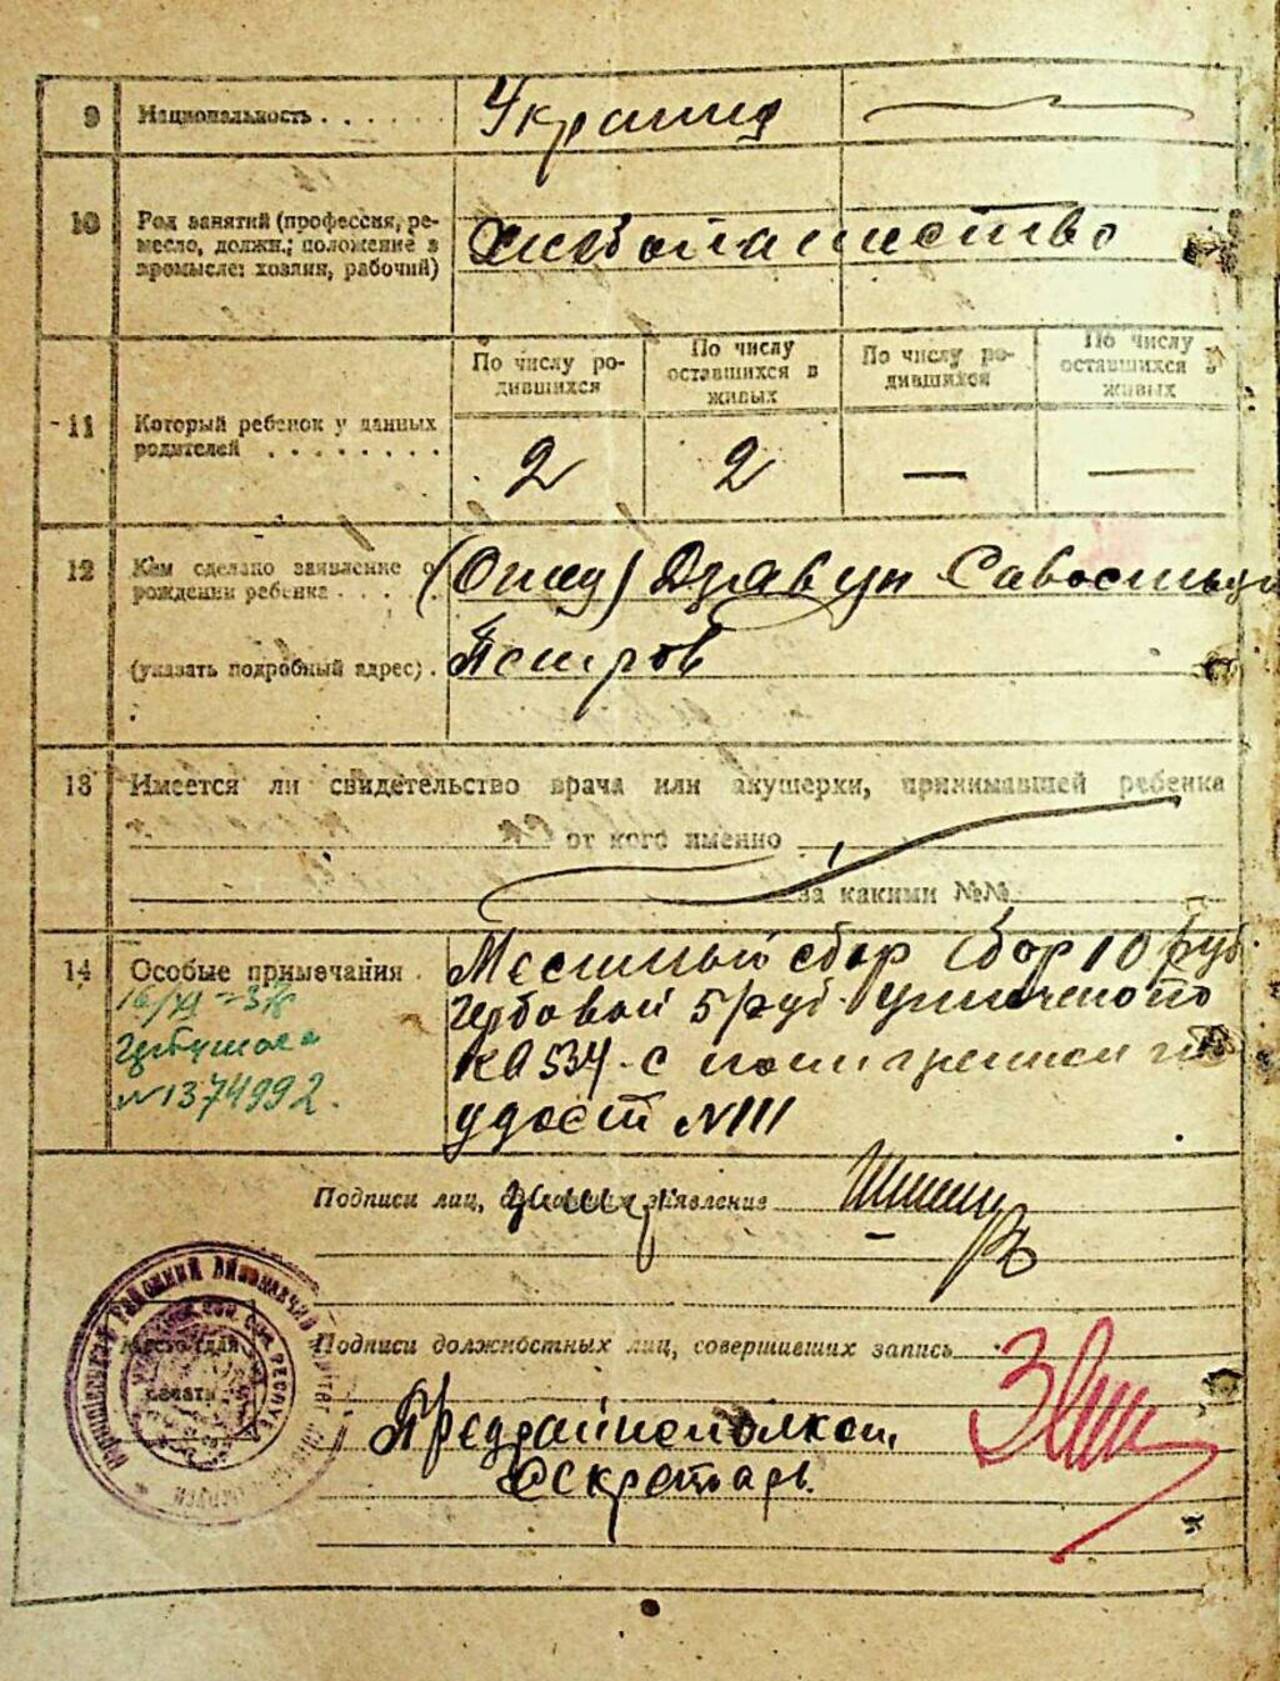 9 Национальность . . . . . . Украинц
10 Род занятий (профессия, ре-
месло, должн.; положение в
промысле: хозяин, рабочий)
хлебопашество
По числу ро-
дившихся
По числу
оставшихся в
живых
По числу ро-
дившихся
По числу
оставшихся в
живых
11 Который ребенок у данных
родителей . . . . . . . .
2 2 — —
12 Кем сделано заявление о
рождении ребенка . . . . .
(Отец)
(указать подробный адрес) .
Петров
13 Имеется ли свидетельство врача или акушерки, принимавшей ребенка
от кого именно
за какими №№
14 Особые примечания .
16/XI-37г
№1374992.
Местный сбор сбор 10 руб.
гербовой 5 руб уплачено по
кв 534 с
удост №111
Подписи лиц, заявление
Подписи должностных лиц, совершивших запись
Место для
печати
Предрайисполком,
Секретарь.